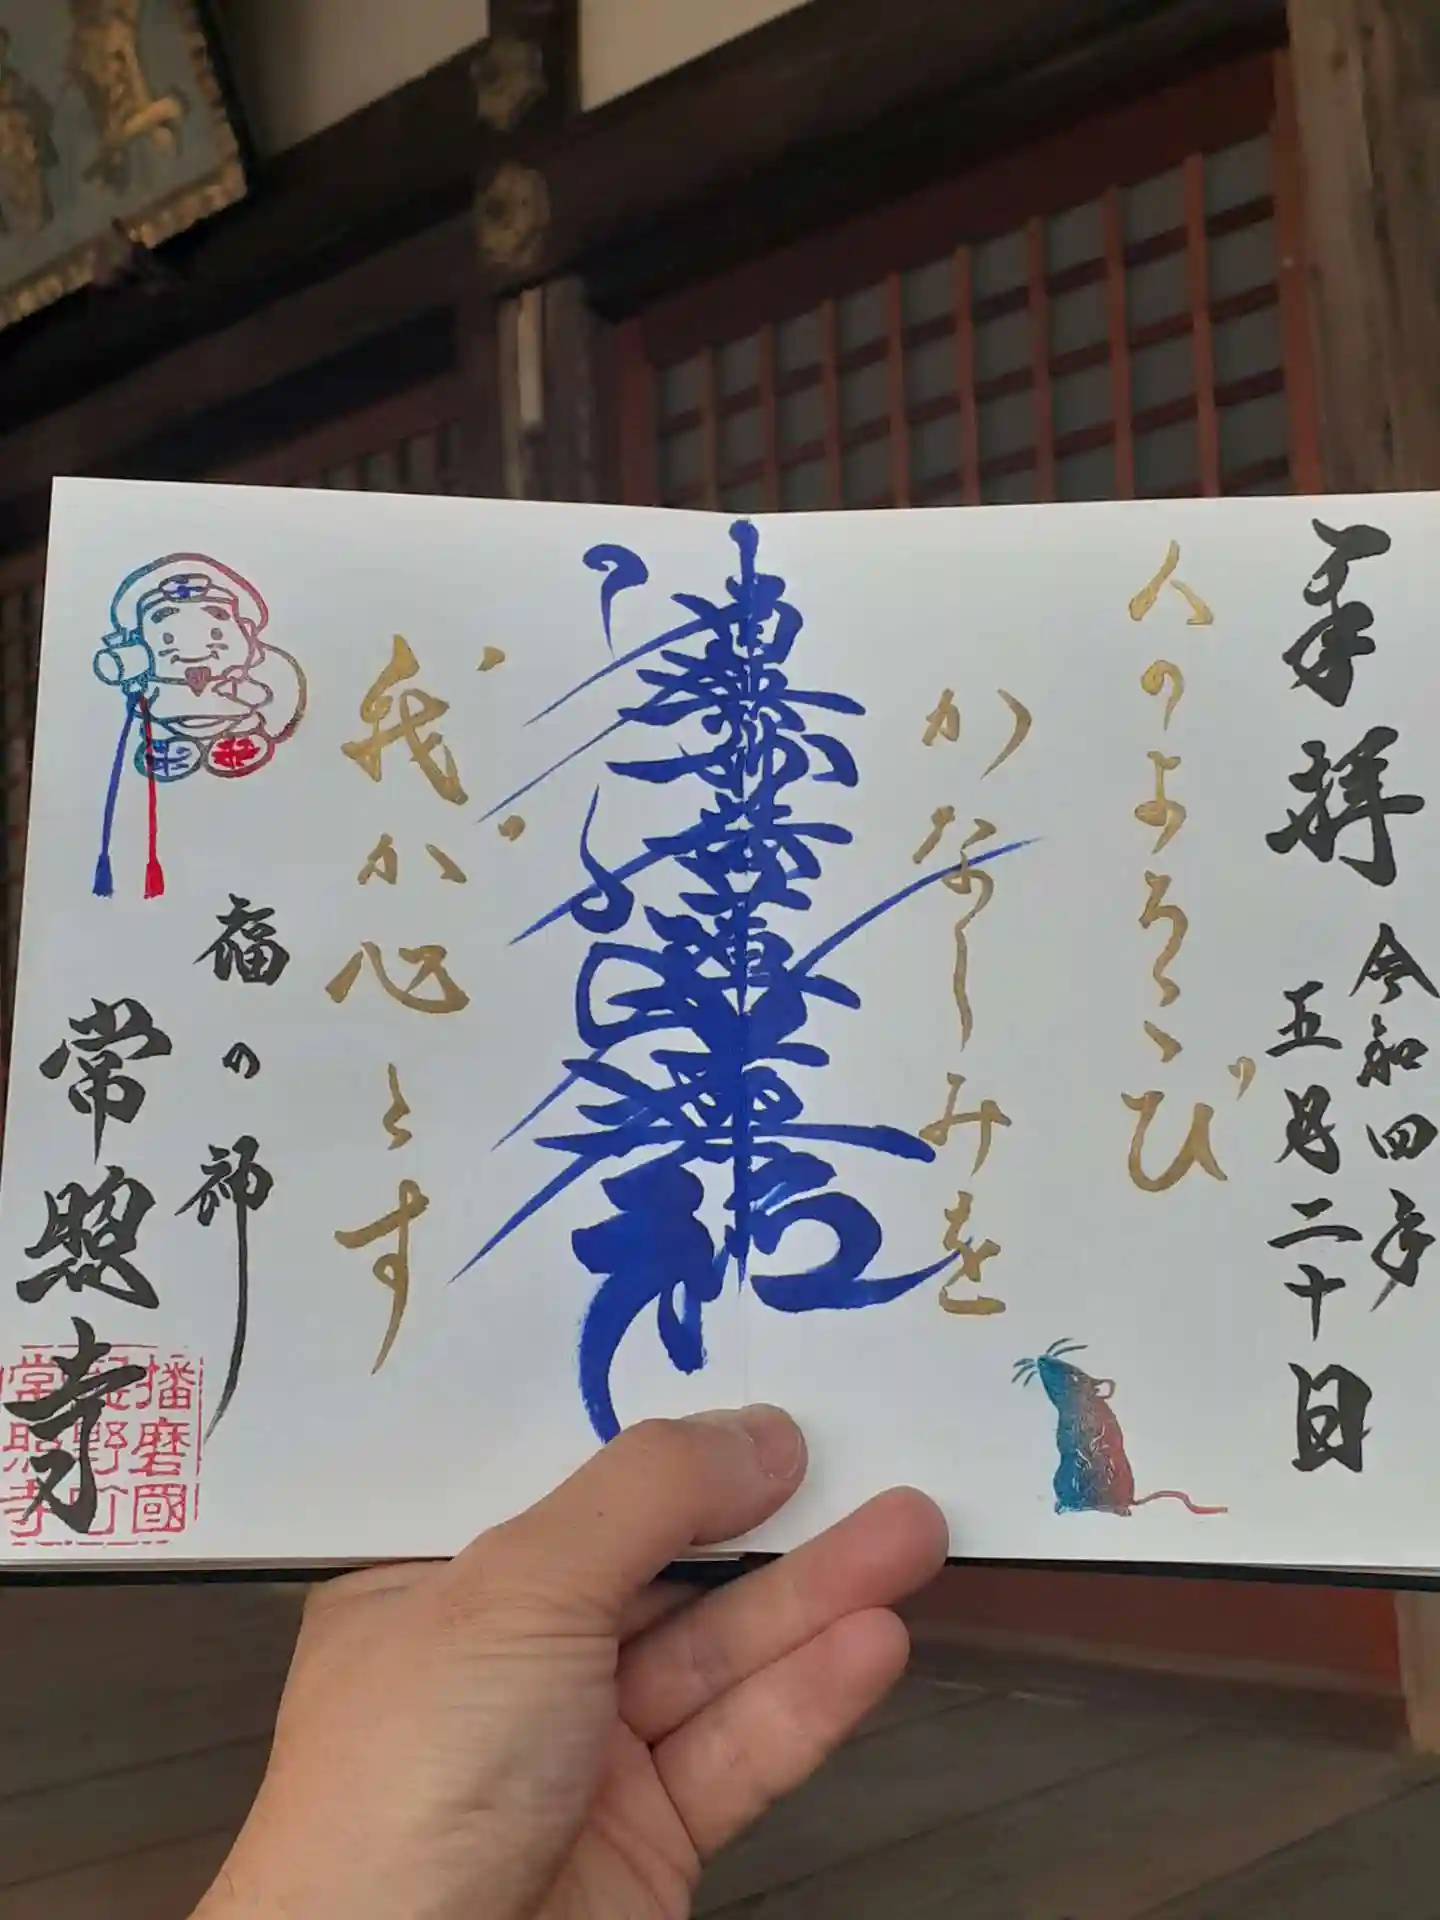 奉拝
令和四年
五月二十日
人のよろこび
かなしみを
南無妙法蓮華経
我が心とす
福の神
常照寺
播磨國
野町
常照寺